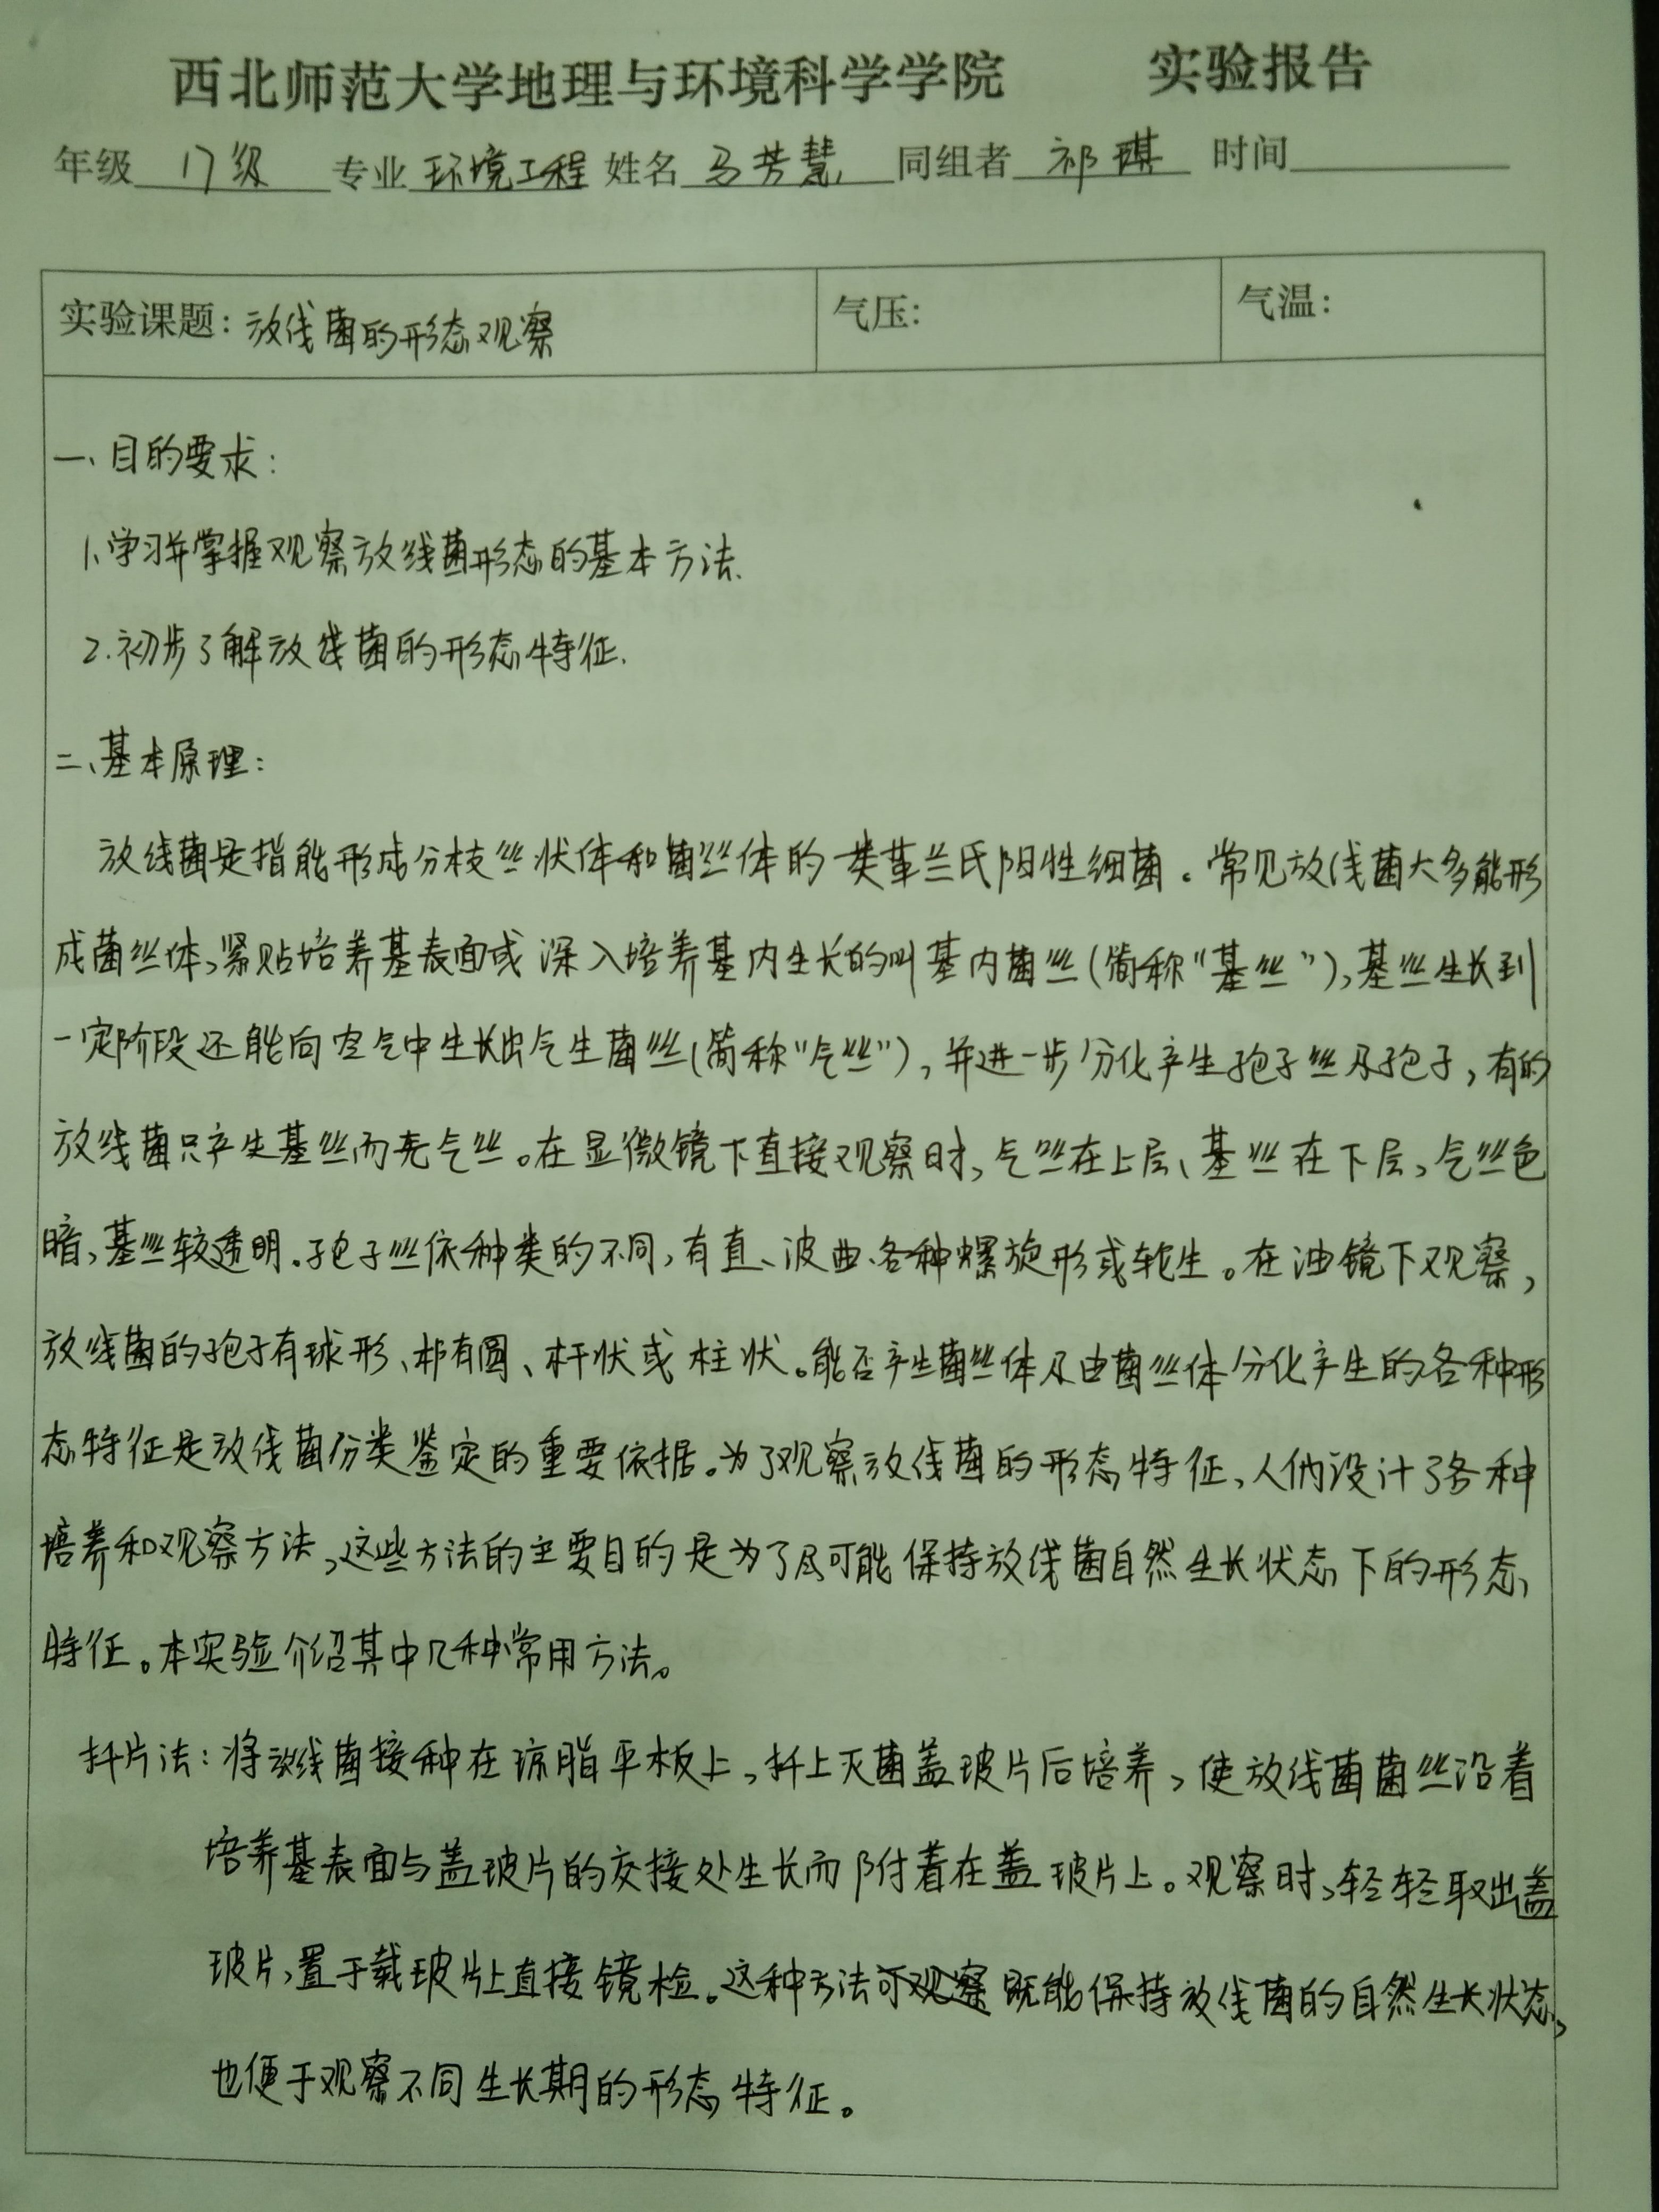 西北师范大学地理与环境科学学院 实验报告
年级 17级 专业 环境工程 姓名 马芳慧 同组者 祁琪 时间
实验课题：放线菌的形态观察 气压： 气温：
一、目的要求：
1.学习并掌握观察放线菌形态的基本方法.
2.初步了解放线菌的形态特征.
二、基本原理：
放线菌是指能形成分枝丝状体和菌丝体的一类革兰氏阳性细菌。常见放线菌大多能形
成菌丝体，紧贴培养基表面或深入培养基内生长的叫基内菌丝(简称“基丝”)，基丝生长到
一定阶段还能向空气中生长出气生菌丝(简称“气丝”)，并进一步分化产生孢子丝及孢子，有的
放线菌只产生基丝而无气丝。在显微镜下直接观察时，气丝在上层、基丝在下层，气丝色
暗，基丝较透明.孢子丝依种类的不同，有直、波曲、各种螺旋形或轮生。在油镜下观察，
放线菌的孢子有球形、有圆、杆状或柱状。能否产生菌丝体及由菌丝体分化产生的各种形
态特征是放线菌份类鉴定的重要依据。为了观察放线菌的形态特征，人们设计了各种
培养和观察方法，这些方法的主要目的是为了尽可能保持放线菌自然生长状态下的形态
特征。本实验介绍其中几种常用方法。
扦片法：将放线菌接种在琼脂平板上，扦上灭菌盖玻片后培养，使放线菌菌丝沿着
培养基表面与盖玻片的交接处生长而附着在盖玻片上。观察时，轻轻取出盖
玻片，置于载玻片上直接镜检。这种方法可观察既能保持放线菌的自然生长状态，
也便于观察不同生长期的形态特征。